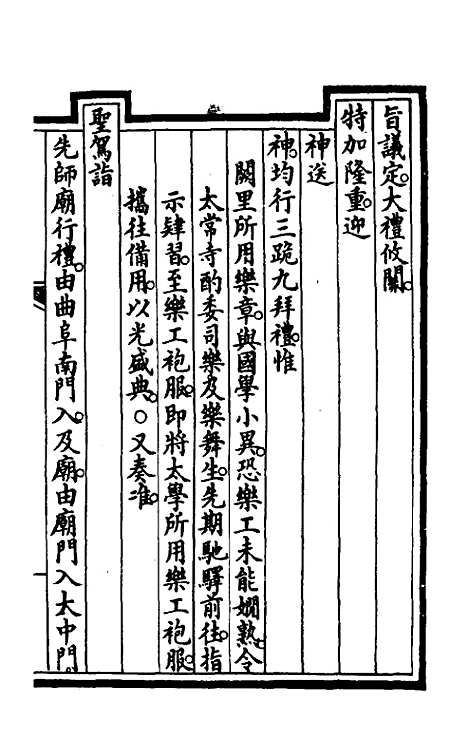 旨議定。大禮攸關。
特加隆重。迎
神送
神。均行三跪九拜禮。惟
闕里所用樂章。與國學小異。恐樂工未能嫺熟。令
太常寺酌委司樂及樂舞生。先期馳驛前往。指
示肄習。至樂工袍服。即將太學所用樂工袍服。
攜往備用。以光盛典。○又奏准。
聖駕詣
先師廟行禮。由曲阜南門入。及廟。由廟門入太中門。